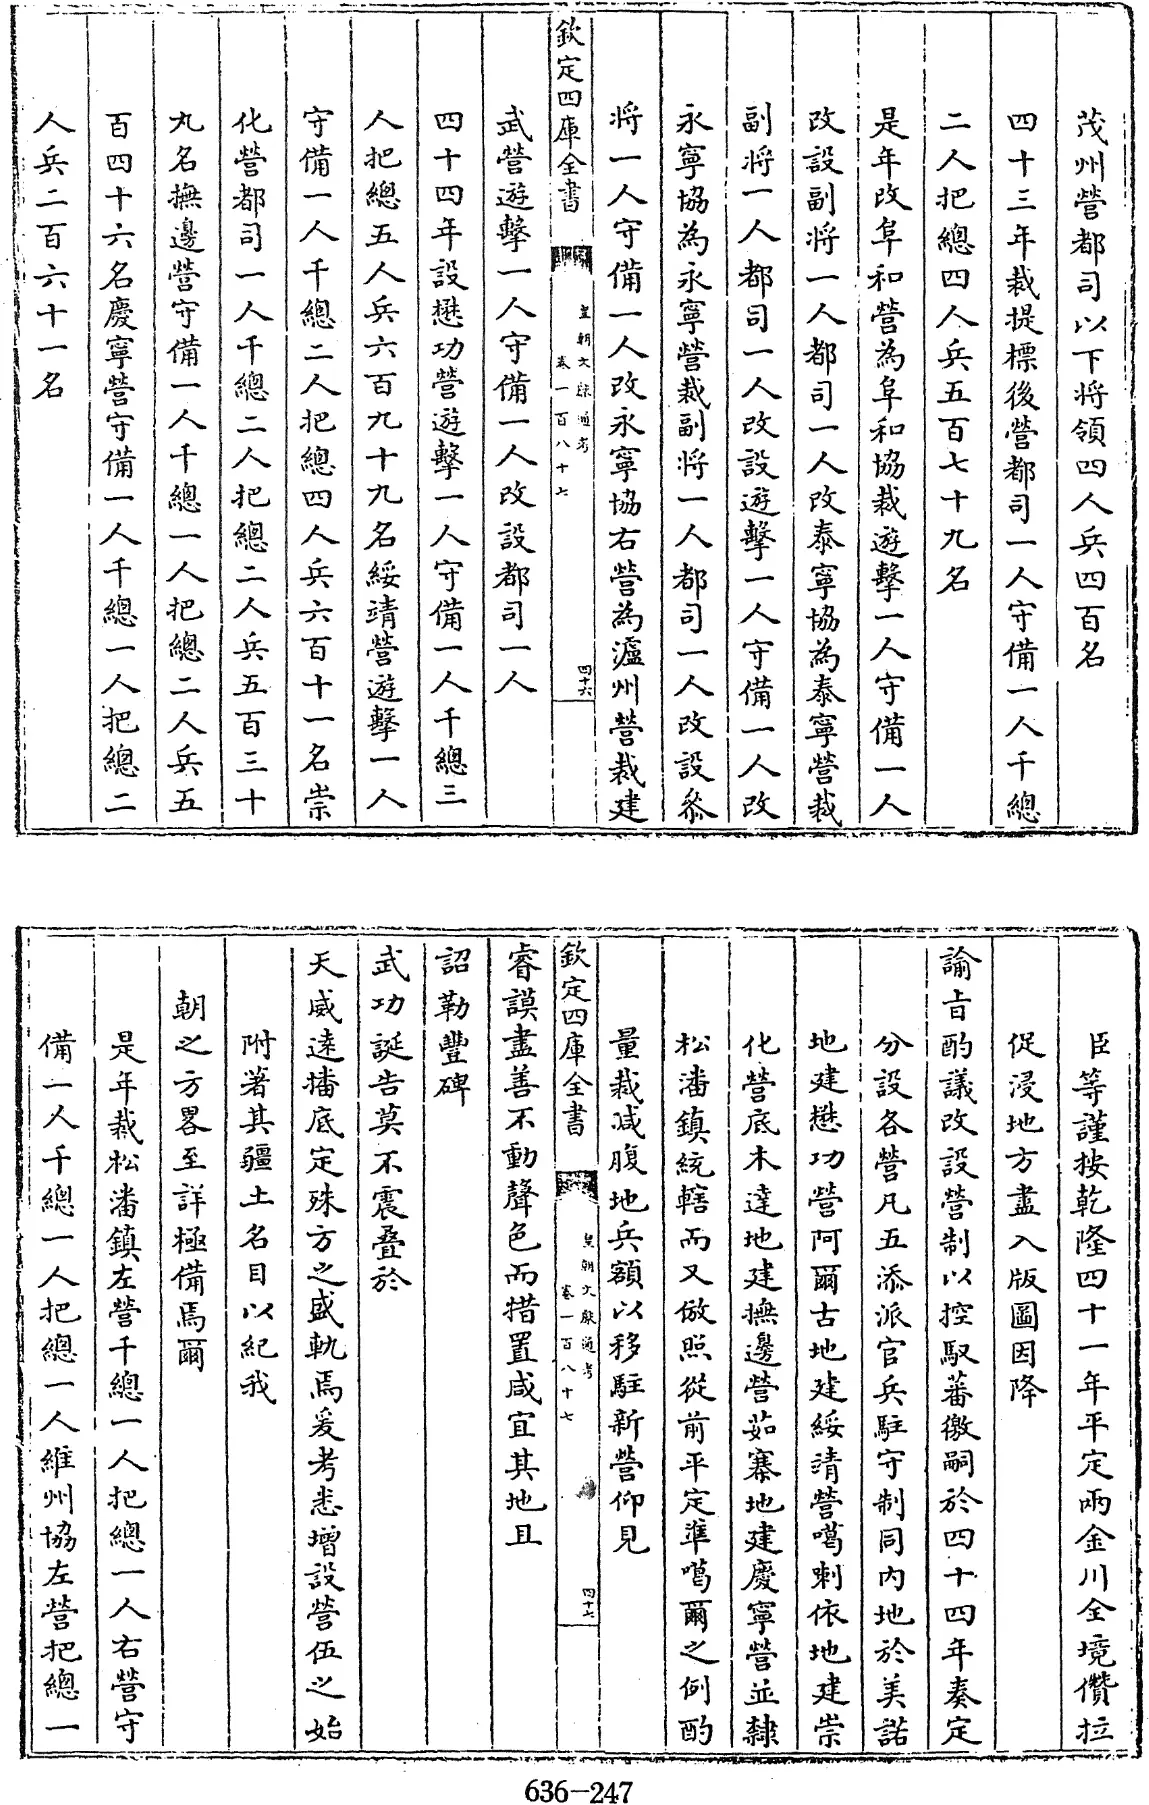 茂州營都司以下將領四人兵四百名
四十三年裁提標後營都司一人守備一人千總
二人把總四人兵五百七十九名
是年改阜和營為阜和協裁遊擊一人守備一人
改設副將一人都司一人改泰寧協為泰寧營裁
副將一人都司一人改設遊擊一人守備一人改
永寧協為永寧營裁副將一人都司一人改設叅
將一人守備一人改永寧協右營為瀘州營裁建
欽定四庫全書
皇朝文獻通考
卷一百八十七
四十六
武營遊擊一人守備一人改設都司一人
四十四年設懋功營遊擊一人守備一人千總三
人把總五人兵六百九十九名綏靖營遊擊一人
守備一人千總二人把總四人兵六百十一名崇
化營都司一人千總二人把總二人兵五百三十
九名撫邊營守備一人千總一人把總二人兵五
百四十六名慶寧營守備一人千總一人把總二
人兵二百六十一名
臣等謹按乾隆四十一年平定兩金川全境儹拉
促浸地方盡入版圖因降
諭旨酌議改設營制以控馭蕃徼嗣於四十四年奏定
分設各營凡五添派官兵駐守制同內地於美諾
地建懋功營阿爾古地建綏靖營噶喇依地建崇
化營底木達地建撫邊營茹寨地建慶寧營並隸
松潘鎮統轄而又倣照從前平定準噶爾之例酌
量裁減腹地兵額以移駐新營仰見
欽定四庫全書
皇朝文獻通考
卷一百八十七
四十七
睿謨盡善不動聲色而措置咸宜其地且
詔勒豐碑
武功誕告莫不震疊於
天威遠播底定殊方之盛軌焉爰考悉增設營伍之始
附著其疆土名目以紀我
朝之方畧至詳極備焉爾
是年裁松潘鎮左營千總一人把總一人右營守
備一人千總一人把總一人維州協左營把總一
636-247